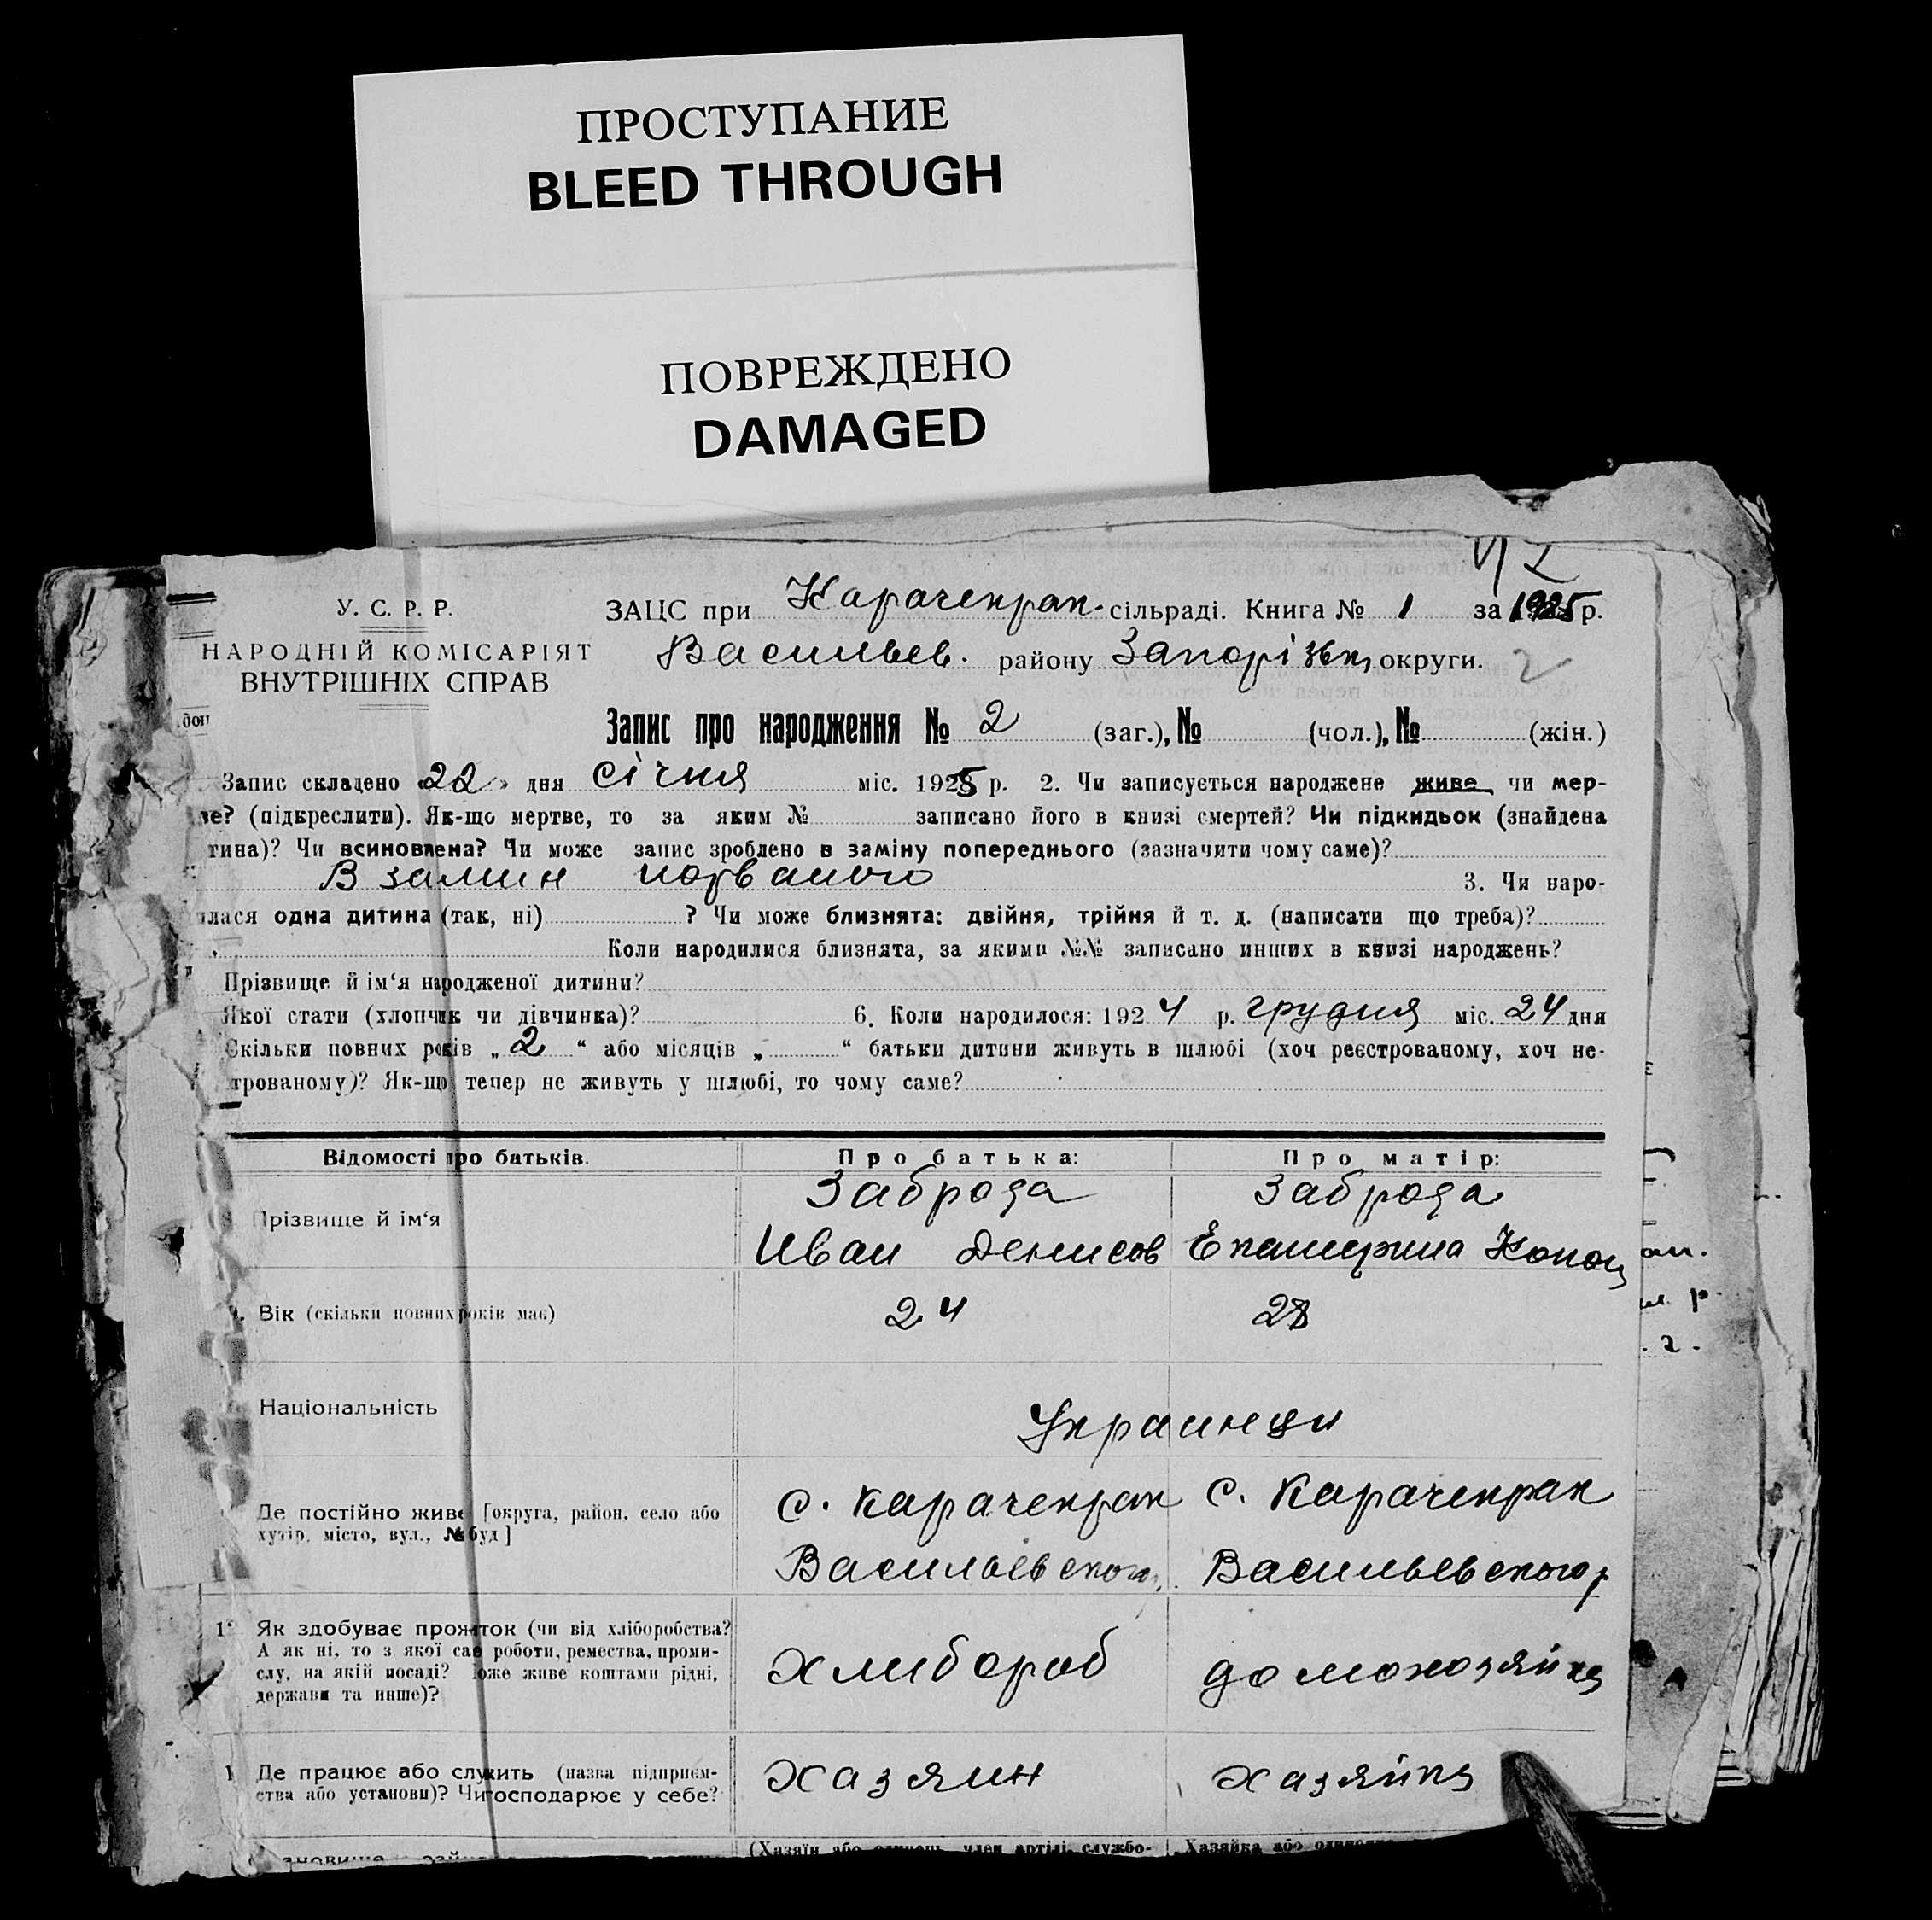 ПРОСТУПАНИЕ
BLEED THROUGH
ПОВРЕЖДЕНО
DAMAGED
У. С. Р. Р.
НАРОДНІЙ КОМІСАРІЯТ
ВНУТРІШНІХ СПРАВ
ЗАЦС при Карачекрак. сільраді. Книга № 1 за 1925 р.
Васильев. району Запорізьк округи. 2
Запис про народження № 2 (заг.), № (чол.), № (жін.)
Запис складено 22 дня січня міс. 1925 р. 2. Чи записується народжене живе чи мер-
ве? (підкреслити). Як-що мертве, то за яким № записано його в книзі смертей? Чи підкидьок (знайдена
тина)? Чи всиновлена? Чи може запис зроблено в заміну попереднього (зазначити чому саме)?
В замин порваного 3. Чи наро-
лася одна дитина (так, ні) ? Чи може близнята: двійня, трійня й т. д. (написати що треба)?
Коли народилися близнята, за якими №№ записано инших в книзі народжень?
Прізвище й ім'я народженої дитини?
Якої стати (хлопчик чи дівчинка)? 6. Коли народилося: 1924 р. грудня міс. 24 дня
Скільки повних років „ 2 “ або місяців „ “ батьки дитини живуть в шлюбі (хоч реєстрованому, хоч не-
трованому)? Як-що тепер не живуть у шлюбі, то чому саме?
Відомості про батьків. Про батька: Про матір:
Прізвище й ім'я
Заброда Заброда
Иван Денисов Екатерина Конон
Вік (скільки повних років має) 24 28
Національність Украинци
Де постійно живе [округа, район, село або
хутір, місто, вул., № буд]
с. Карачекрак с. Карачекрак
Васильевского Васильевского р
Як здобуває прожиток (чи від хліборобства?
А як ні, то з якої саме роботи, ремества, проми-
слу, на якій посаді? може живе коштами рідні,
держави та инше)?
хлибороб домохозяйка
Де працює або служить (назва підприєм-
ства або установи)? Чи господарює у себе?
хазяин хазяйка
(Хазяїн або одинець, член артілі, службо- Хазяйка або